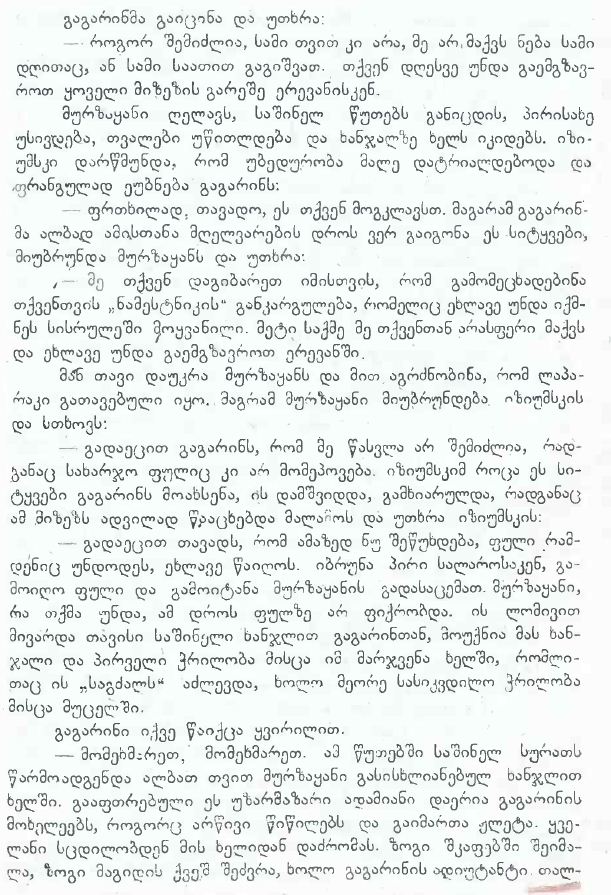 გაგარინმა გაიცინა და უთხრა:
— როგორ შემიძლია, სამი თვით კი არა, მე არ მაქვს ნება სამი
დღითაც, ან სამი საათით გაგიშვათ. თქვენ დღესვე უნდა გაემგზავ-
როთ ყოველი მიზეზის გარეშე ერევანისკენ.
მურზაყანი ღელავს, საშინელ წუთებს განიცდის, პირისახე
უსივდება, თვალები უწითლდება და ხანჯალზე ხელს იკიდებს. იზი-
უმსკი დარწმუნდა, რომ უბედურობა მალე დატრიალდებოდა და
ფრანგულად ეუბნება გაგარინს:
— ფრთხილად, თავადო, ეს თქვენ მოგკლავსთ. მაგარამ გაგარინ-
მა ალბად ამისთანა მღელვარების დროს ვერ გაიგონა ეს სიტყვები,
მიუბრუნდა მურზაყანს და უთხრა:
— მე თქვენ დაგიბარეთ იმისთვის, რომ გამომეცხადებინა
თქვენთვის „ნამესტნიკის“ განკარგულება, რომელიც ეხლავე უნდა იქმ-
ნეს სისრულეში მოყვანილი. მეტი საქმე მე თქვენთან არასფერი მაქვს
და ეხლავე უნდა გაემგზავროთ ერევანში.
მან თავი დაუკრა მურზაყანს და მით აგრძნობინა, რომ ლაპა-
რაკი გათავებული იყო. მაგრამ მურზაყანი მიუბრუნდება იზიუმსკის
და სთხოვს:
— გადაეცით გაგარინს, რომ მე წასვლა არ შემიძლია, რად-
განაც სახარჯო ფულიც კი არ მომეპოვება. იზიუმსკიმ როცა ეს სი-
ტყვები გაგარინს მოახსენა, ის დამშვიდდა, გამხიარულდა, რადგანაც
ამ მიზეზს ადვილად წააცხებდა მალამოს და უთხრა იზიუმსკის:
— გადაეცით თავადს, რომ ამაზედ ნუ შეწუხდება, ფული რამ-
დენიც უნდოდეს, ეხლავე წაიღოს. იბრუნა პირი სალაროსაკენ, გა-
მოიღო ფული და გამოიტანა მურზაყანის გადასაცემათ. მურზაყანი,
რა თქმა უნდა, ამ დროს ფულზე არ ფიქრობდა. ის ლომივით
მივარდა თავისი საშინელი ხანჯლით გაგარინთან, მოუქნია მას ხან-
ჯალი და პირველი ჭრილობა მისცა იმ მარჯვენა ხელში, რომლი-
თაც ის „საგძალს“ აძლევდა, ხოლო მეორე სასიკვდილო ჭრილობა
მისცა მუცელში.
გაგარინი იქვე წაიქცა ყვირილით.
— მომეხმარეთ, მომეხმარეთ. ამ წუთებში საშინელ სურათს
წარმოადგენდა ალბათ თვით მურზაყანი გასისხლიანებულ ხანჯლით
ხელში. გააფთრებული ეს უზარმაზარი ადამიანი დაერია გაგარინის
მოხელეებს, როგორც არწივი წიწილებს და გაიმართა ჟლეტა. ყვე-
ლანი სცდილობდენ მის ხელიდან დაძრომას. ზოგი შკაფებში შეიმა-
ლა, ზოგი მაგიდის ქვეშ შეძვრა, ხოლო გაგარინის ადიუტანტი თალ-